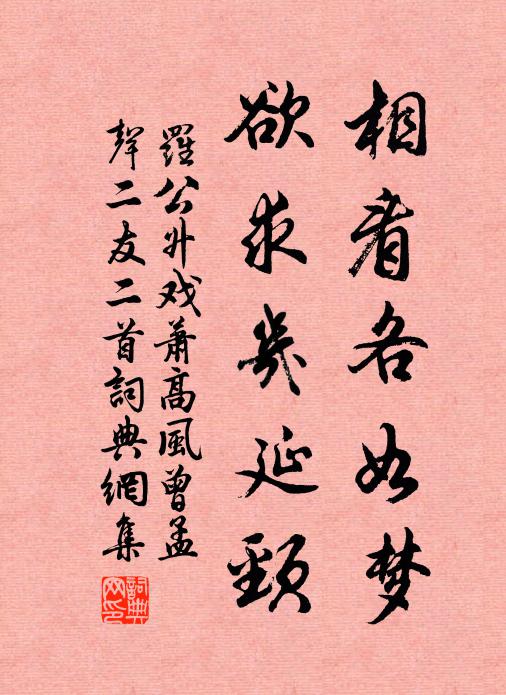 相看各如梦
欲求几延頸
羅公升戏蕭高風曾孟
聲二友二首詞典網集
詞典網印